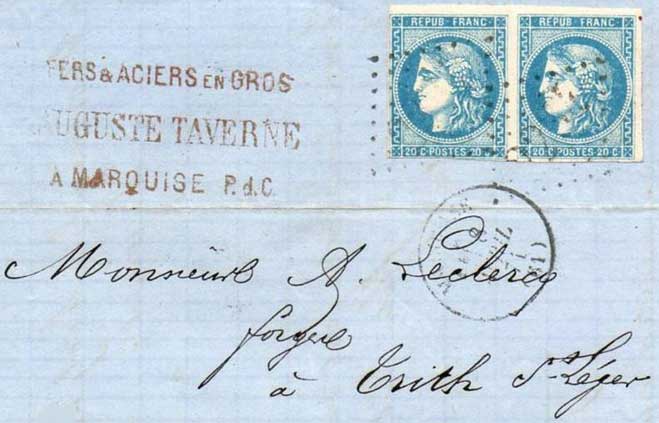 REPUB FRANC REPUB FRANC
20 C·POSTES·20 C 20 C·POSTES·20 C
FERS & ACIERS EN GROS
AUGUSTE TAVERNE
A MARQUISE P.d.C
(61)
Monsieur A. Leclercq
forges
à Trith St Léger